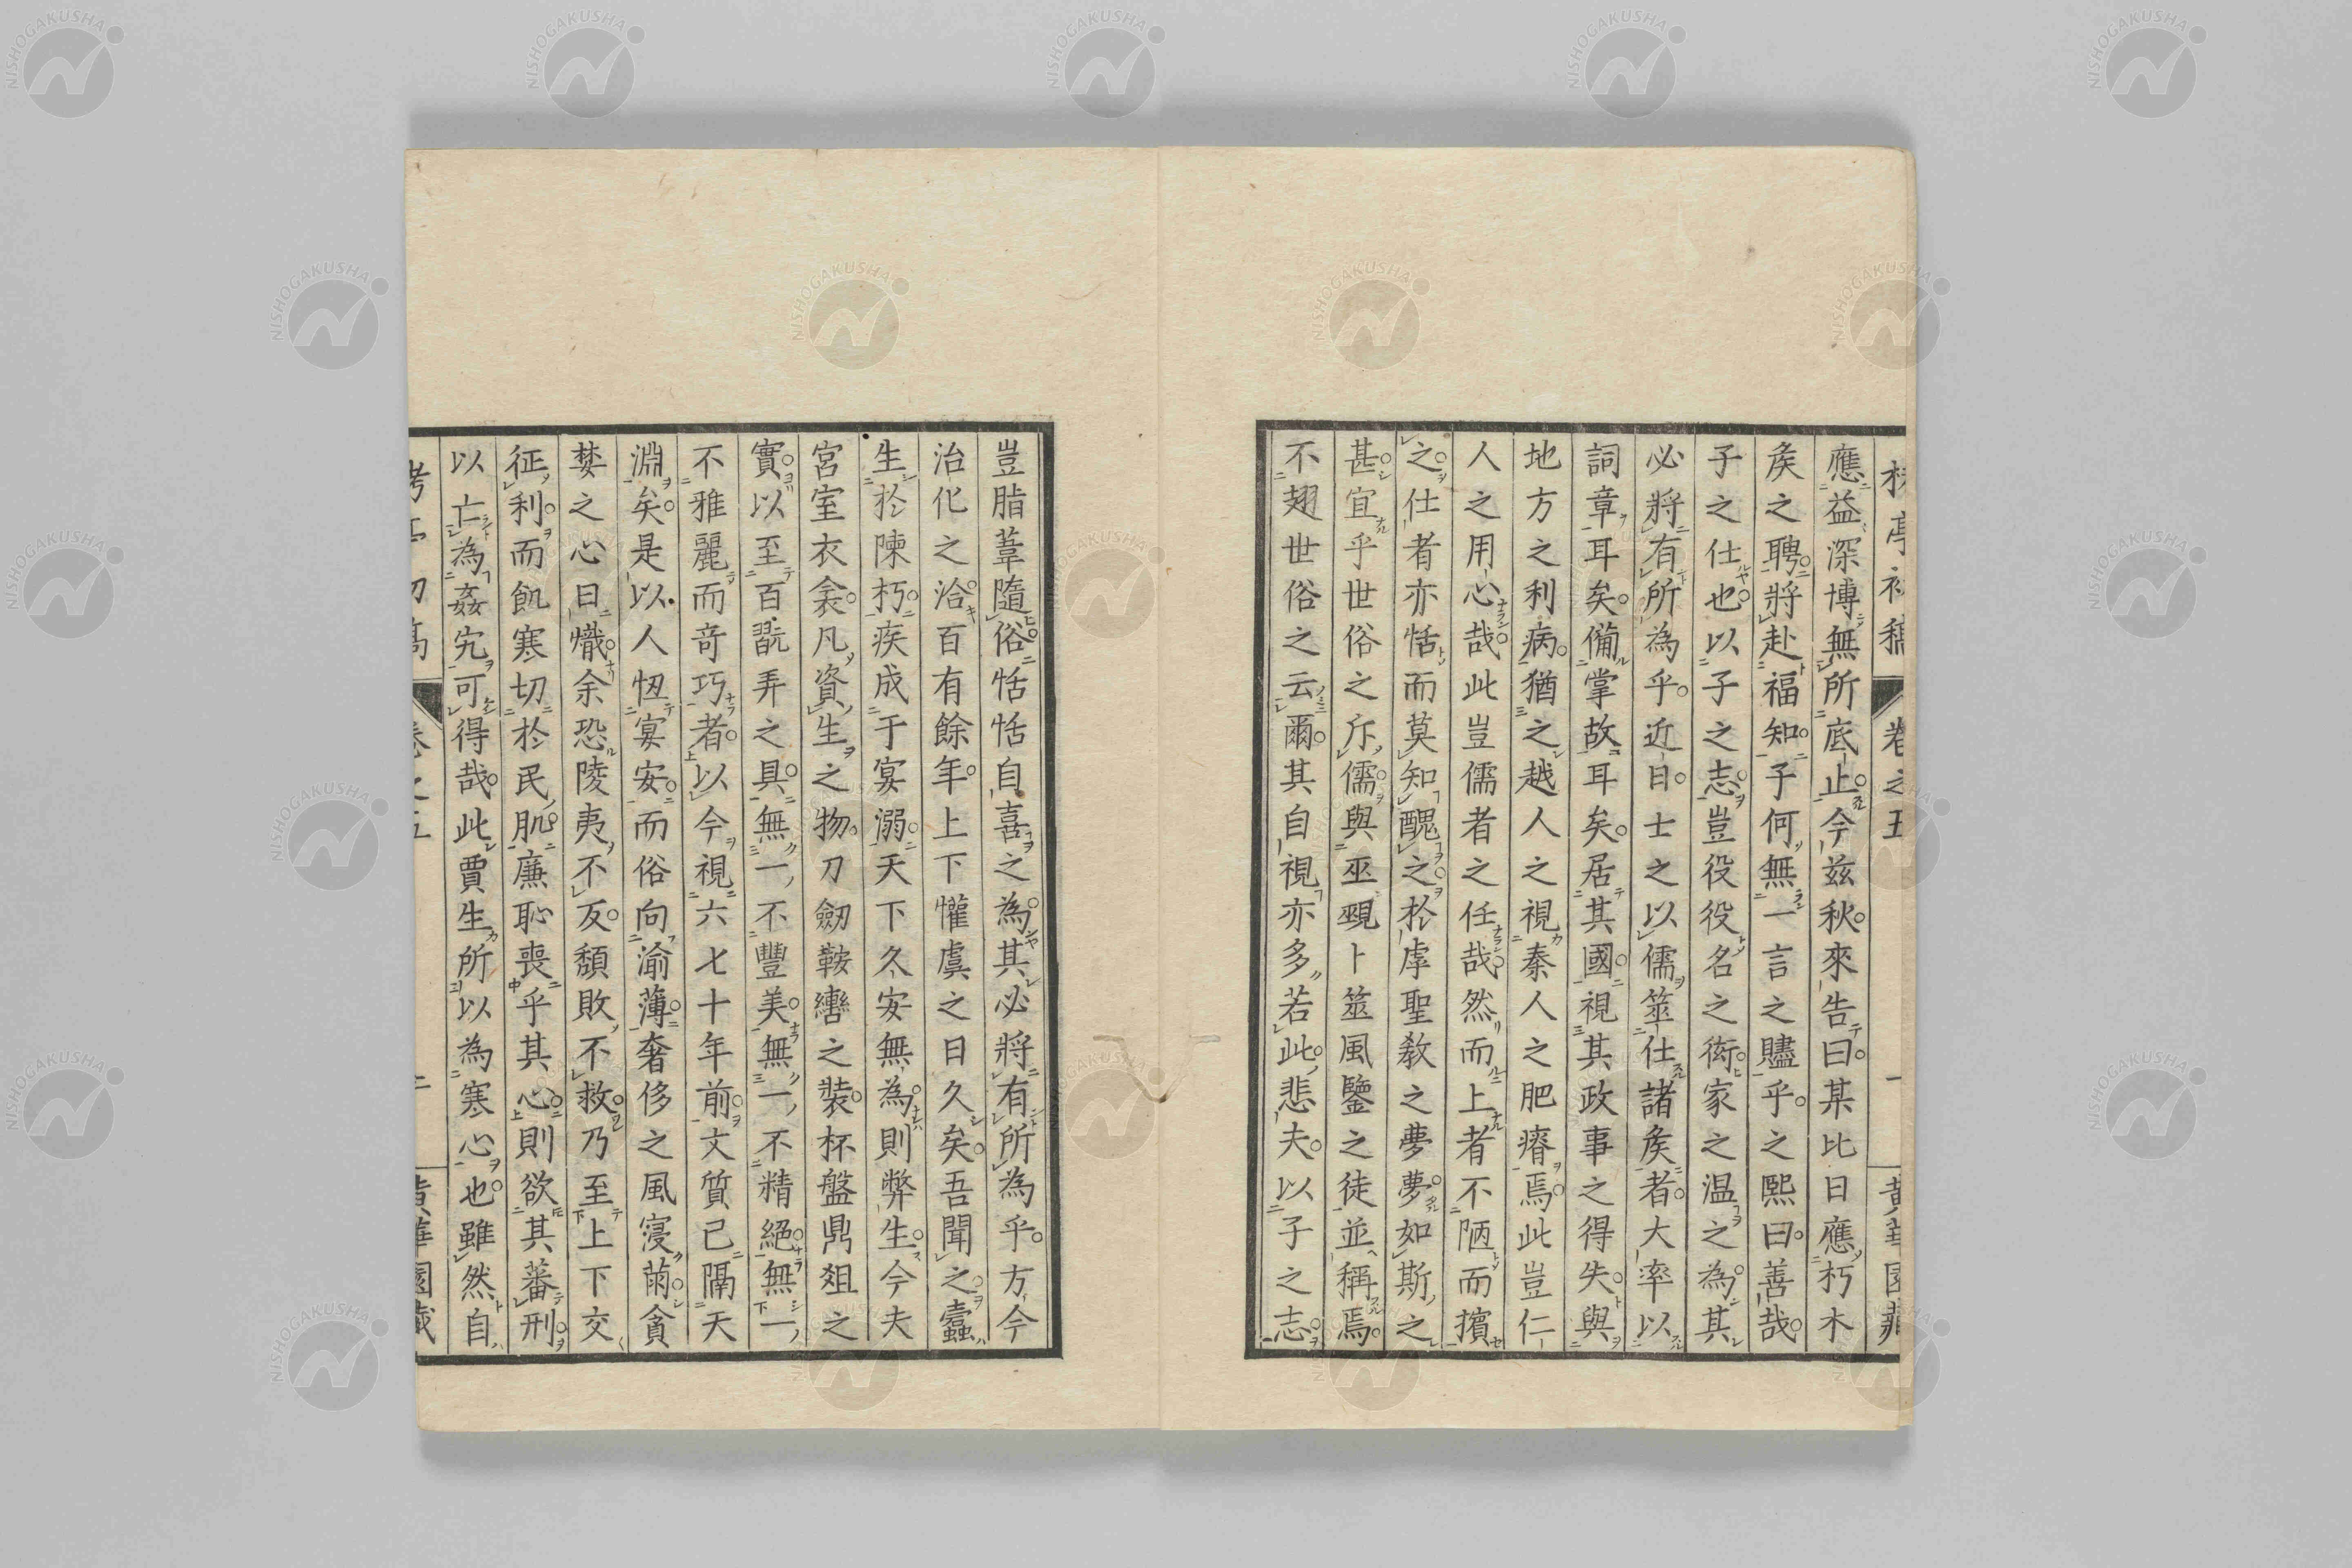 卷之五 一
應益深博無所底止今茲秋來告曰某比日應朽木
矦之聘將赴福知子何無一言之贐乎之熙曰善哉
子之仕也以子之志豈役役名之衒家之温之為其
必將有所為乎近日士之以儒筮仕諸矦者大率以
詞章耳矣備掌故耳矣居其國視其政事之得失與
地方之利病猶之越人之視秦人之肥瘠焉此豈仁
人之用心哉此豈儒者之任哉然而上者不陋而擯
之仕者亦恬而莫知醜之於虖聖教之夢夢如斯之
甚宜乎世俗之斥儒與巫覡卜筮風鑒之徒並稱焉
不翅世俗之云爾其自視亦多若此悲夫以子之志
豈脂韋隨俗恬恬自喜之為其必將有所為乎方今
治化之洽百有餘年上下懽虞之日久矣吾聞之蠹
生於陳朽疾成于宴溺天下久安無為則弊生今夫
宮室衣衾凡資生之物刀劒鞍轡之裝杯盤鼎俎之
實以至百翫弄之具無一不豐美無一不精絕無一
不雅麗而奇巧者以今視六七十年前文質已隔天
淵矣是以人忸宴安而俗向渝薄奢侈之風寖萠貪
婪之心日熾余恐陵夷不反頹敗不救乃至上下交
征利而飢寒切於民肌廉恥喪乎其心則欲其蕃刑
以亡為姦宄可得哉此賈生所以為寒心也雖然自